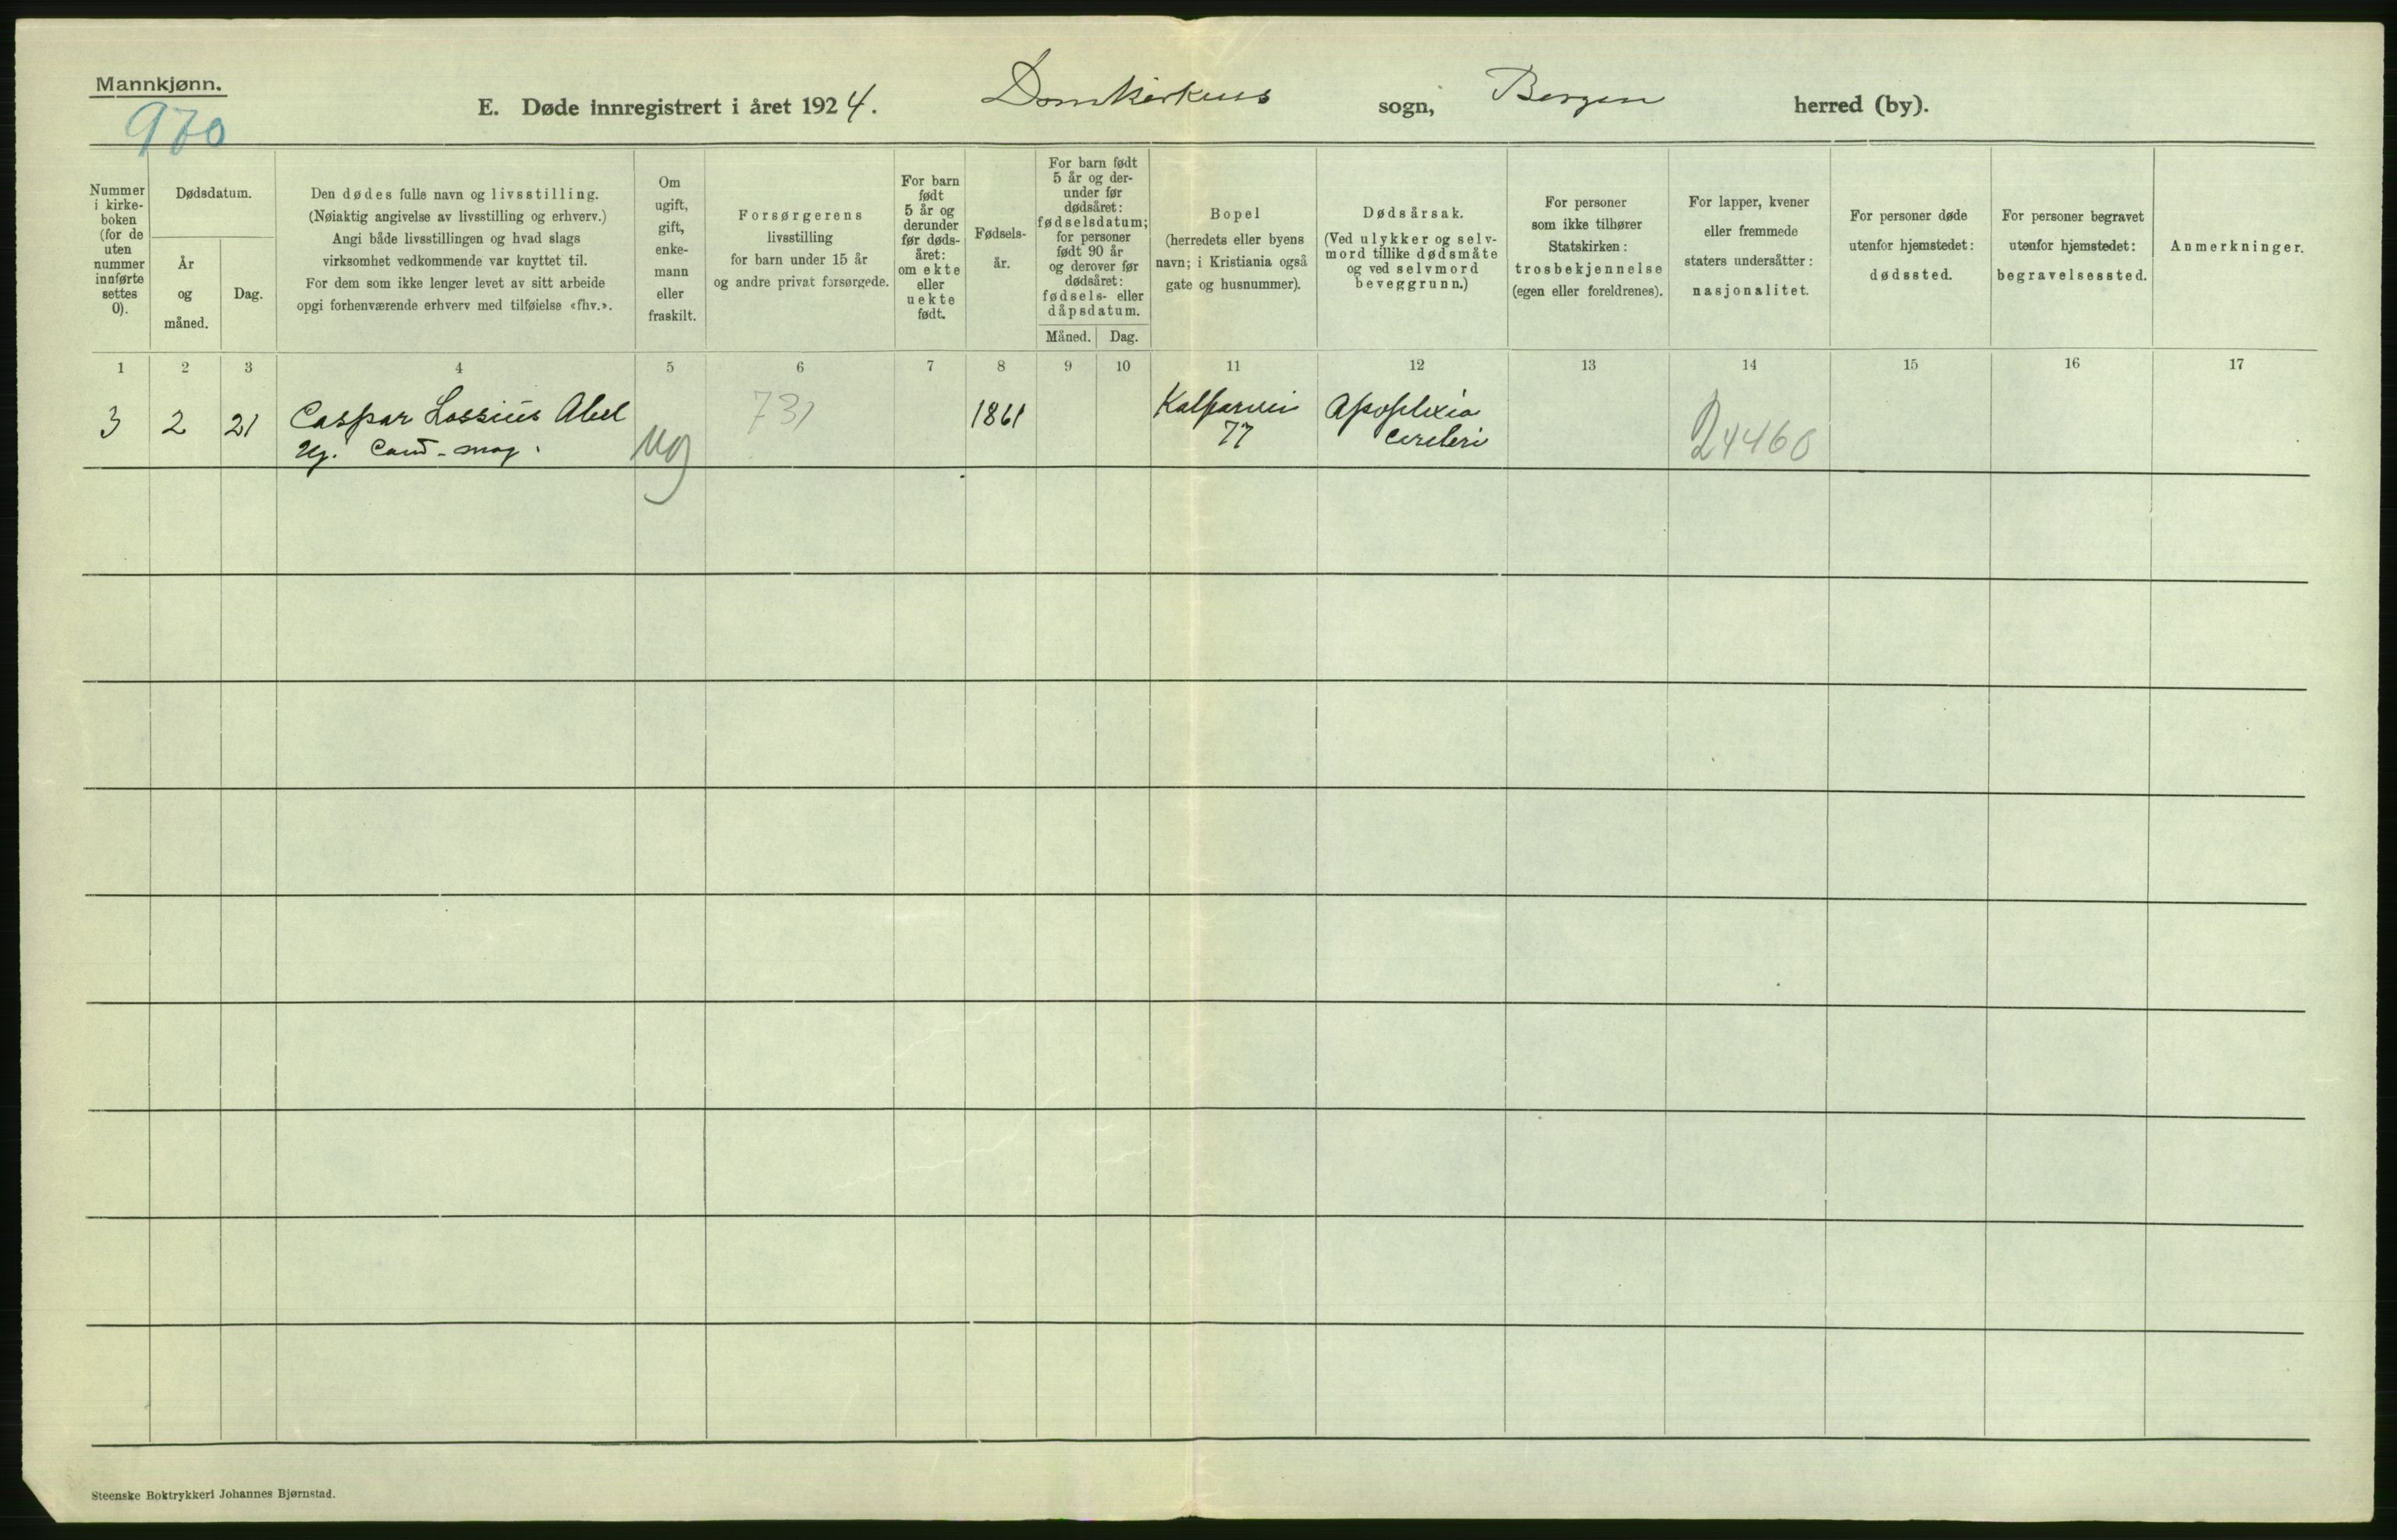 Mannkjønn.
970
E. Døde innregistrert i året 1924. Domkirkens sogn, Bergen herred (by).
Nummer i kirke- boken (for de uten nummer innførte settes 0).
Dødsdatum.
År og måned.
Dag.
Den dødes fulle navn og livsstilling.
(Nøiaktig angivelse av livsstilling og erhverv.)
Angi både livsstillingen og hvad slags
virksomhet vedkommende var knyttet til.
For dem som ikke lenger levet av sitt arbeide
opgi forhenværende erhverv med tilføielse «fhv.».
Om ugift, gift, enke- mann eller fraskilt.
Forsørgerens
livsstilling
for barn under 15 år
og andre privat forsørgede.
For barn født 5 år og derunder før døds- året: om ekte eller uekte født.
Fødsels- år.
For barn født 5 år og der- under før dødsåret: fødselsdatum; for personer født 90 år og derover før dødsåret: fødsels- eller dåpsdatum.
Måned. Dag.
Bopel
(herredets eller byens
navn; i Kristiania også
gate og husnummer).
Dødsårsak.
(Ved ulykker og selv-
mord tillike dødsmåte
og ved selvmord
beveggrunn.)
For personer
som ikke tilhører
Statskirken:
trosbekjennelse
(egen eller foreldrenes).
For lapper, kvener
eller fremmede
staters undersåtter:
nasjonalitet.
For personer døde
utenfor hjemstedet:
dødssted.
For personer begravet
utenfor hjemstedet:
begravelsessted.
Anmerkninger.
1 2 3 4 5 6 7 8 9 10 11 12 13 14 15 16 17
3 2 21 Caspar Lossius Abel 731 1861 Kalfarvei Apoplexia
Ug. Cand. mag. ug 77 cerebri 24460
Steenske Boktrykkeri Johannes Bjørnstad.